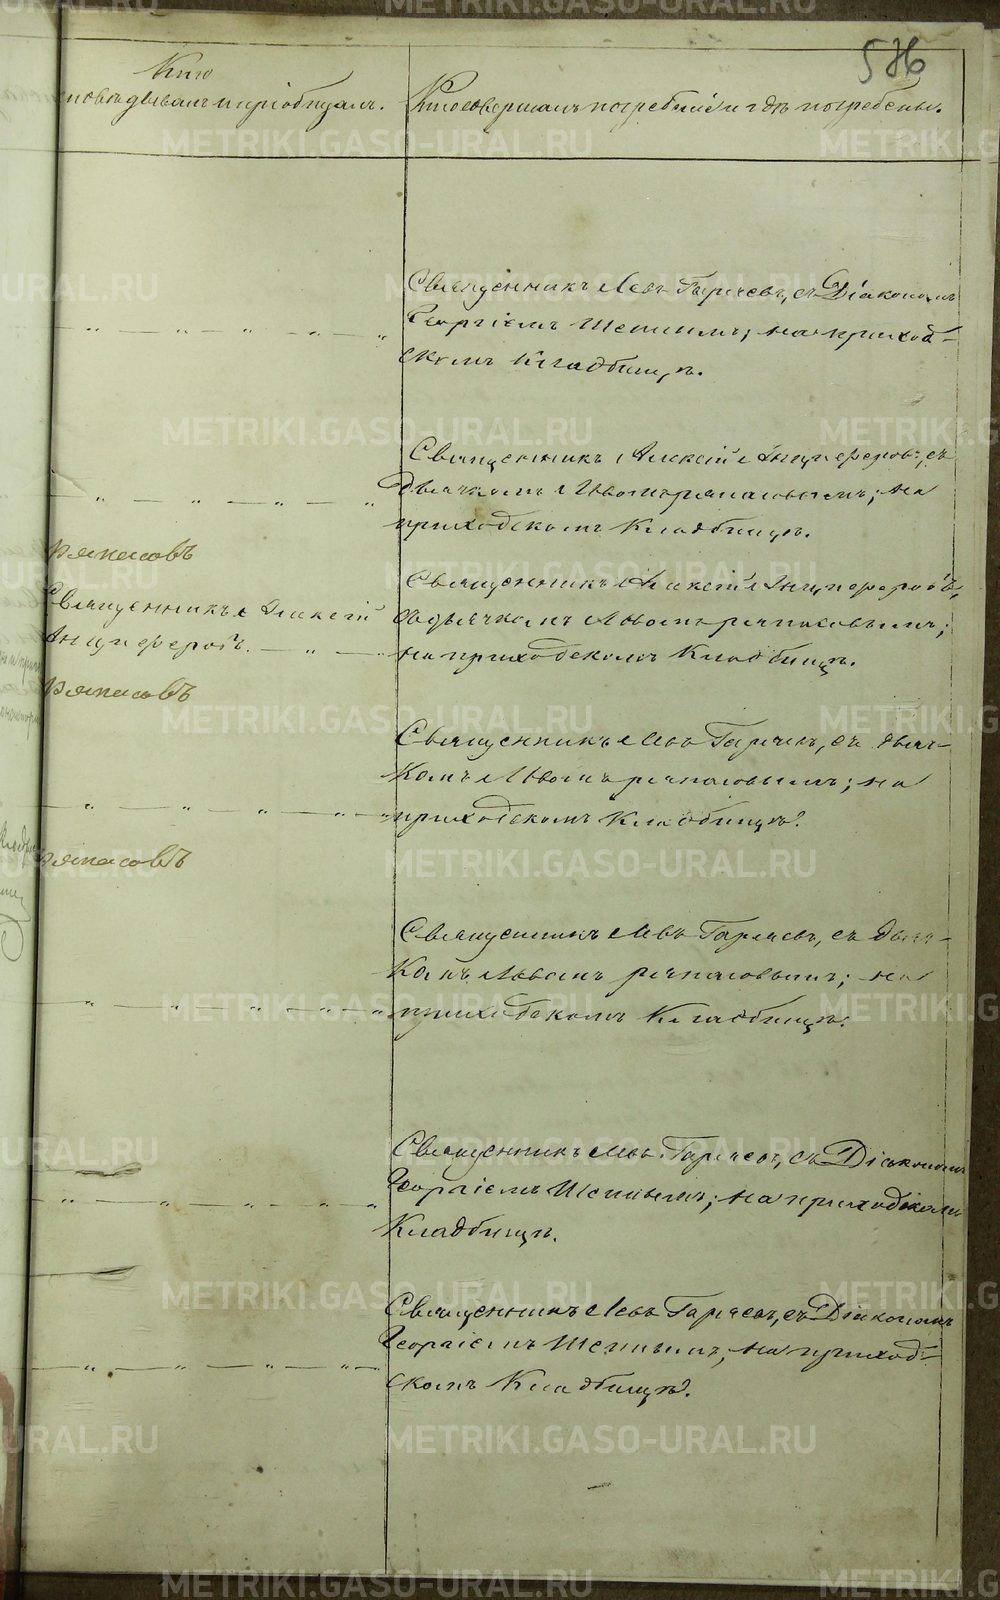 586
Кто
исповѣдывалъ и пріобщалъ.
Кто совершалъ погребеніе и гдѣ погребены.
Священникъ Левъ Гаряевъ, съ Діакономъ
Георгіемъ Шетнымъ; на приход-
скомъ Кладбищѣ.
Священникъ Алексій Анциферовъ, съ
дьячкомъ Львомъ ряпасовымъ; на
приходскомъ Кладбищѣ.
ряпасовъ
Священникъ Алексій
Анциферовъ.
Священникъ Алексій Анциферовъ,
съ дьячкомъ Львомъ ряпасовымъ;
на приходскомъ Кладбищѣ.
ряпасовъ
Священникъ Левъ Гаряевъ, съ дьяч-
комъ Львомъ ряпасовымъ; на
приходскомъ Кладбищѣ.
ряпасовъ
Священникъ Левъ Гаряевъ, съ дьяч-
комъ Львомъ ряпасовымъ; на
приходскомъ Кладбищѣ.
Священникъ Левъ Гаряевъ, съ Діакономъ
Георгіемъ; на приходскомъ
Кладбищѣ.
Священникъ Левъ Гаряевъ, съ Діакономъ
Георгіемъ; на приход-
скомъ Кладбищѣ.
METRIKI.GASO-URAL.RU